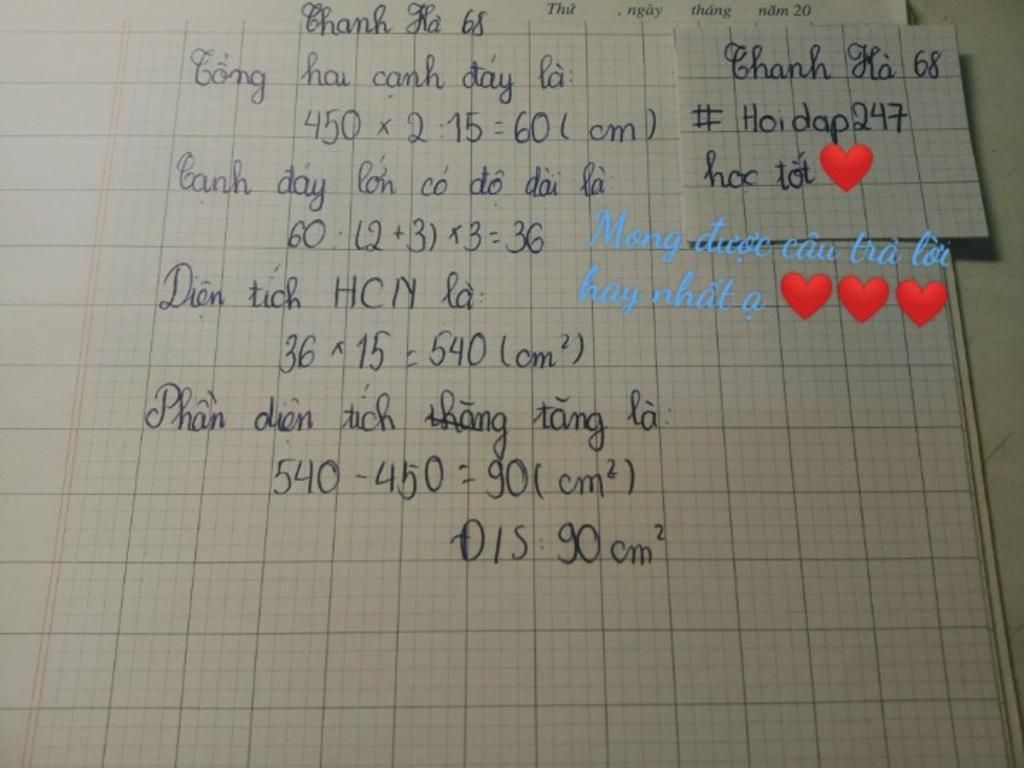 Thứ , ngày tháng năm 20
Thanh Hà 68
Tổng hai cạnh đáy là:
450 × 2 : 15 = 60 ( cm )
Cạnh đáy lớn có độ dài là:
60 : (2 + 3) × 3 = 36
Diện tích HCN là:
36 × 15 = 540 ( cm² )
Phần diện tích thăng tăng là:
540 - 450 = 90 ( cm² )
Đ/S: 90 cm²
Thanh Hà 68
# Hoidap247
học tốt ❤️
Mong được câu trả lời
hay nhất ạ ❤️❤️❤️